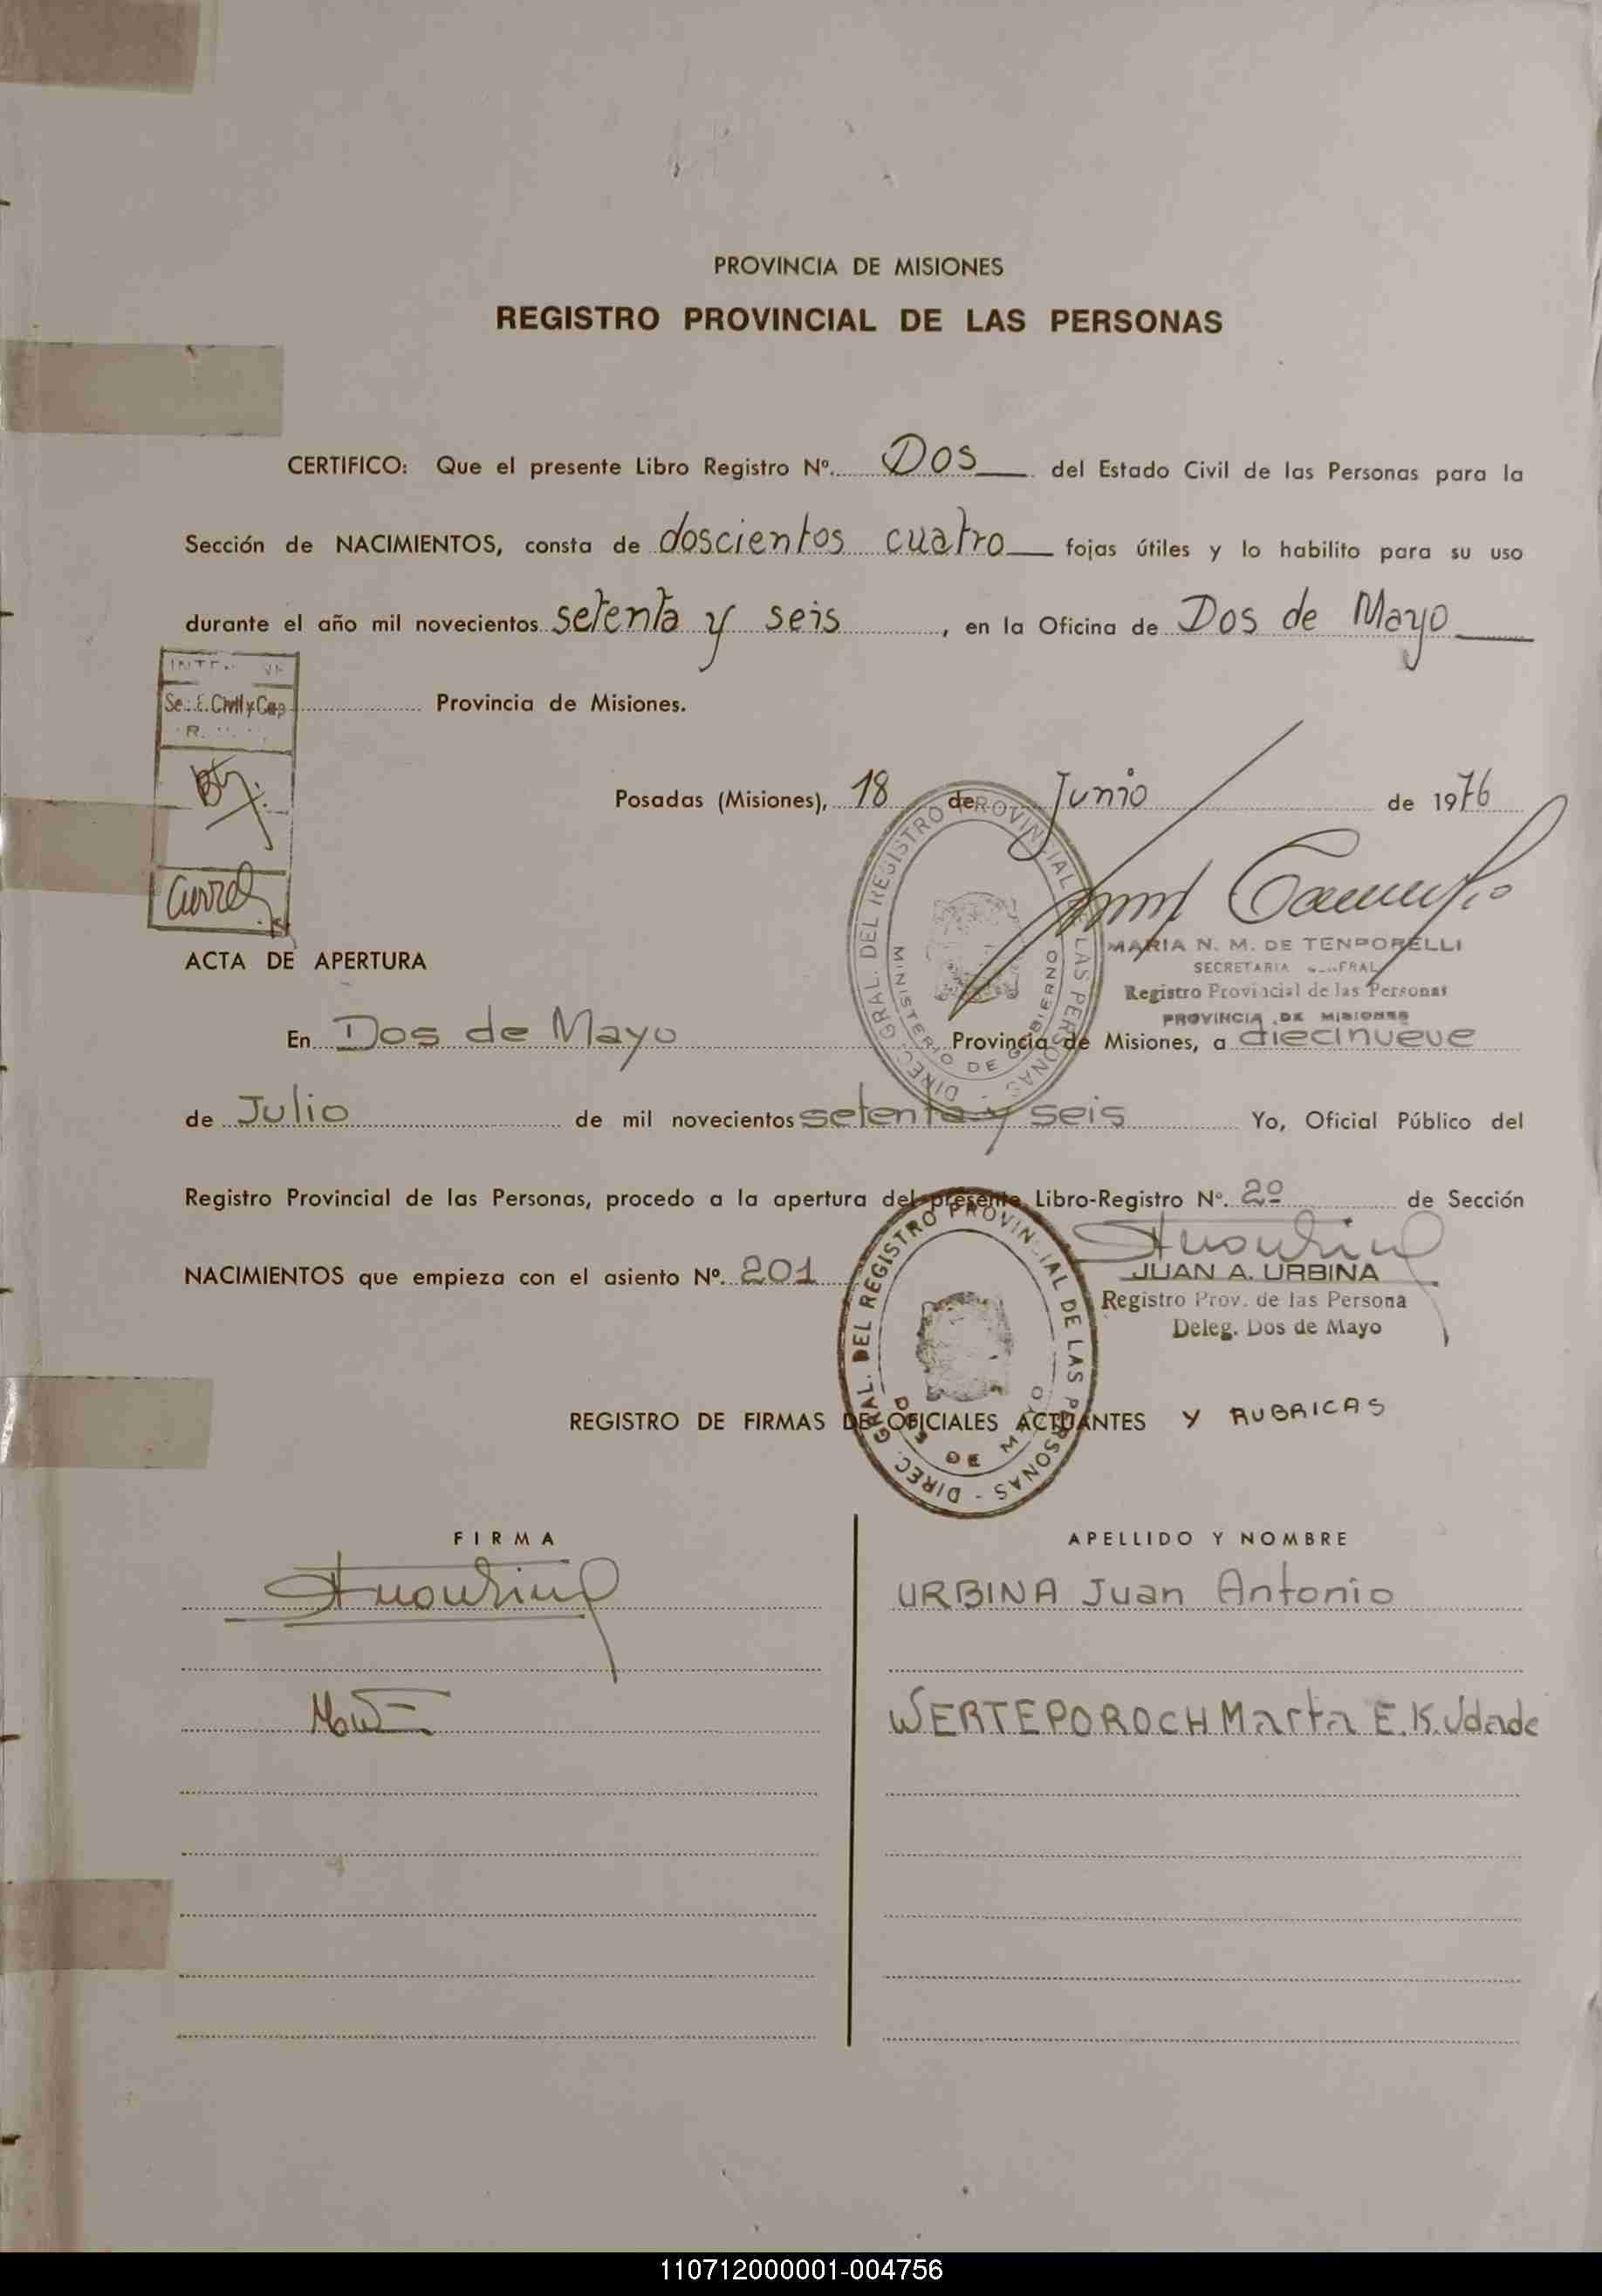 PROVINCIA DE MISIONES
REGISTRO PROVINCIAL DE LAS PERSONAS
CERTIFICO: Que el presente Libro Registro Nº. Dos del Estado Civil de las Personas para la
Sección de NACIMIENTOS, consta de doscientos cuatro fojas útiles y lo habilito para su uso
durante el año mil novecientos setenta y seis, en la Oficina de Dos de Mayo
Provincia de Misiones.
Se. E. Civil y Cap
Posadas (Misiones), 18 de Junio de 1976
DIREC. GRAL. DEL REGISTRO PROVINCIAL DE LAS PERSONAS
MINISTERIO DE GOBIERNO
MARIA N. M. DE TEMPORELLI
SECRETARIA
Registro Provincial de las Personas
PROVINCIA DE MISIONES
ACTA DE APERTURA
En Dos de Mayo Provincia de Misiones, a diecinueve
de Julio de mil novecientos setenta y seis Yo, Oficial Público del
Registro Provincial de las Personas, procedo a la apertura del presente Libro-Registro Nº. 2º de Sección
NACIMIENTOS que empieza con el asiento Nº. 201
JUAN A. URBINA
Registro Prov. de las Persona
Deleg. Dos de Mayo
DIREC. GRAL. DEL REGISTRO PROVINCIAL DE LAS PERSONAS -
DOS DE MAYO
REGISTRO DE FIRMAS DE OFICIALES ACTUANTES Y RUBRICAS
FIRMA APELLIDO Y NOMBRE
URBINA Juan Antonio
WERTEPOROCH Marta E. K. Vda de
110712000001-004756